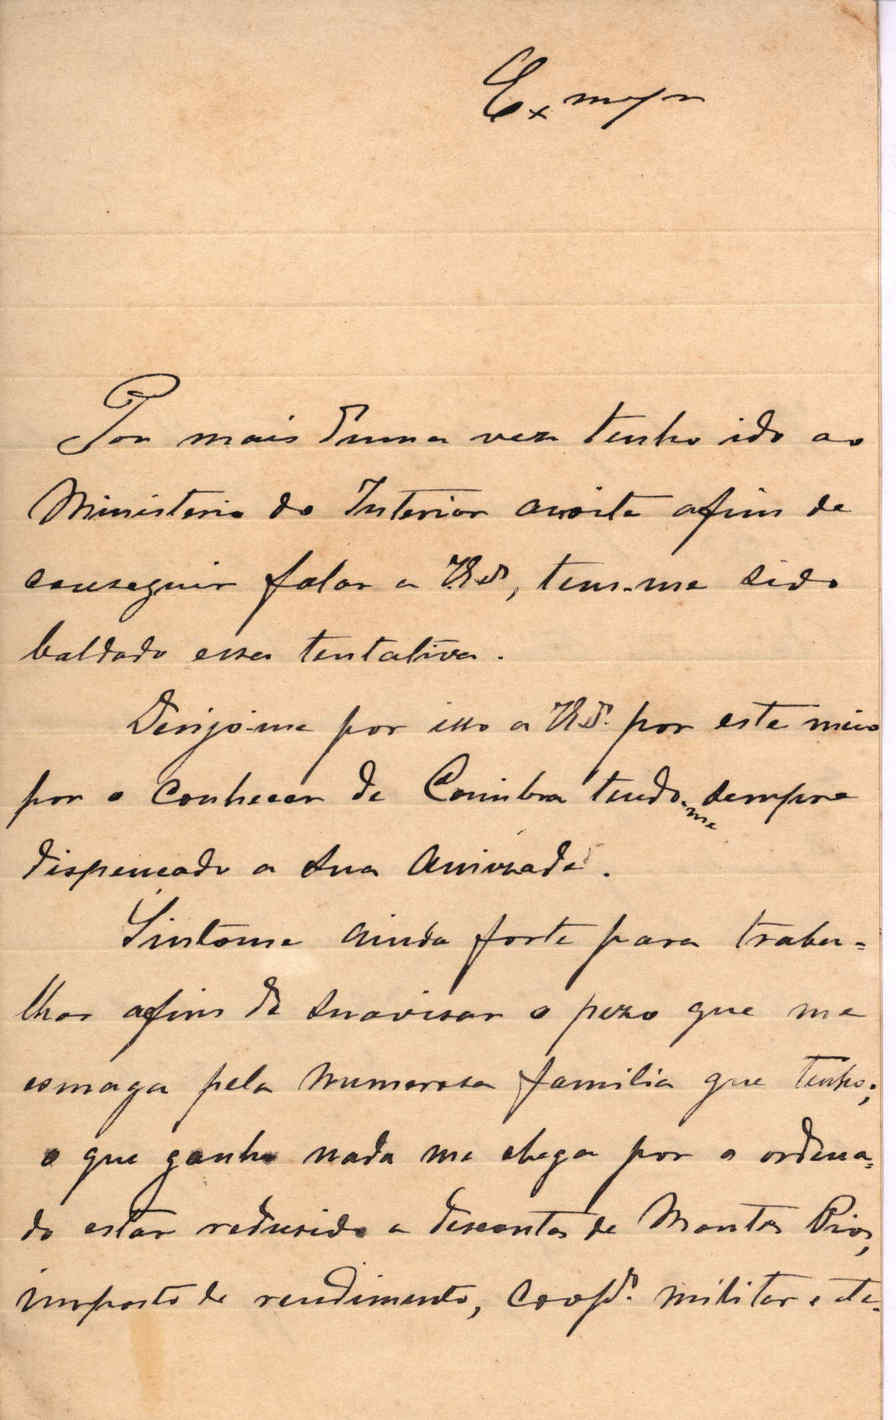 Exmo Sr
Por mais d'uma vez tenho ido ao
Ministerio do Interior a noite afim de
conseguir falar a V. Ex.ª, tem-me sido
baldado essa tentativa.
Dirijo-me por isso a V. Ex.ª por este meio
por o conhecer de Coimbra tendo-me sempre
dispençado a sua amizade.
Sintome ainda forte para traba-
lhar afim de suavisar o pezo que me
esmaga pela numerosa familia que tenho;
o que ganho nada me chega por o ordena-
do estar redusido a descontos de Montes Pios,
imposto de rendimento, coop.ª militar etc.